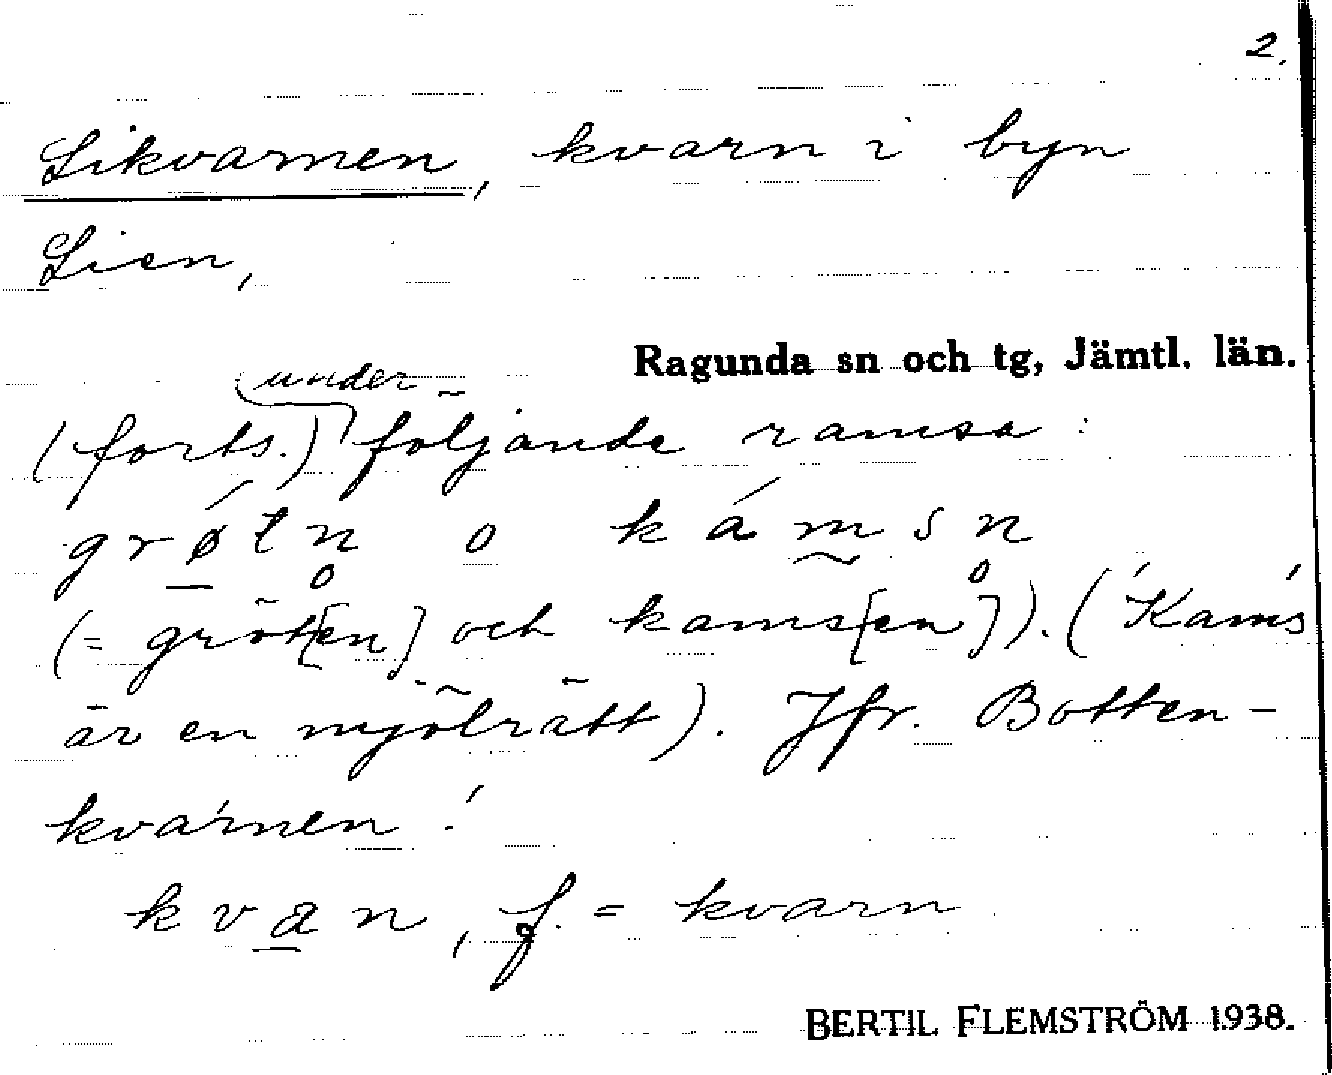 2.
Likvarnen, kvarn i byn
Lien,
Ragunda sn och tg, Jämtl. län.
(forts.) under följande ramsa:
grǿ̲tn̥ o kám̰sn̥
(= gröt[en] och kams[en]). (Kams
är en mjölrätt). Jfr. Botten-
kvarnen!
kva̲n, f. = kvarn
BERTIL FLEMSTRÖM 1938.